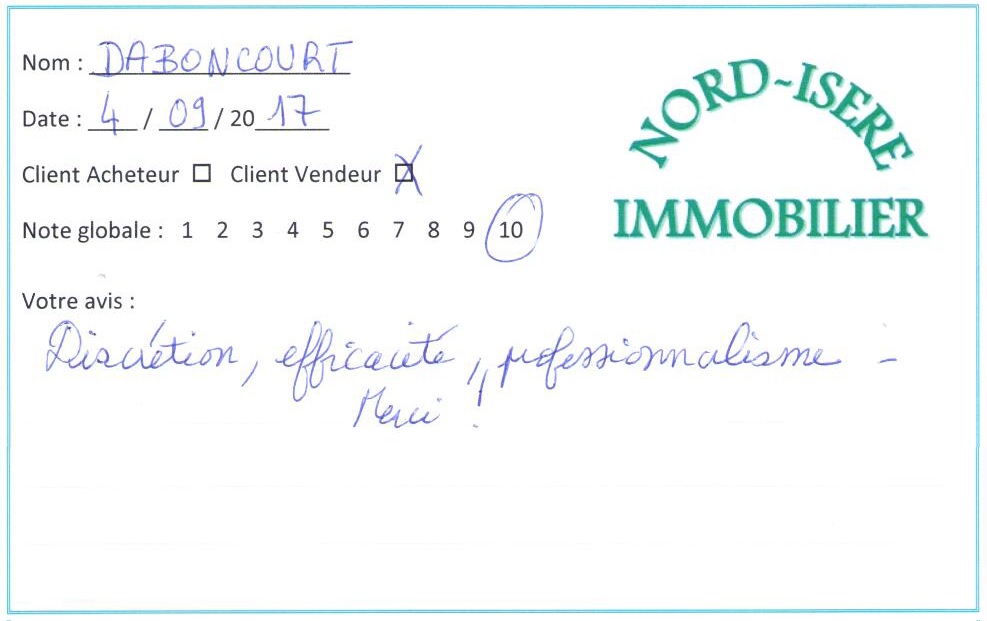 Nom : DABONCOURT
Date : 4 / 09 / 20 17
Client Acheteur ☐ Client Vendeur ☒
Note globale : 1 2 3 4 5 6 7 8 9 10
NORD-ISERE
IMMOBILIER
Votre avis :
Discrétion, efficacité, professionnalisme -
Merci !